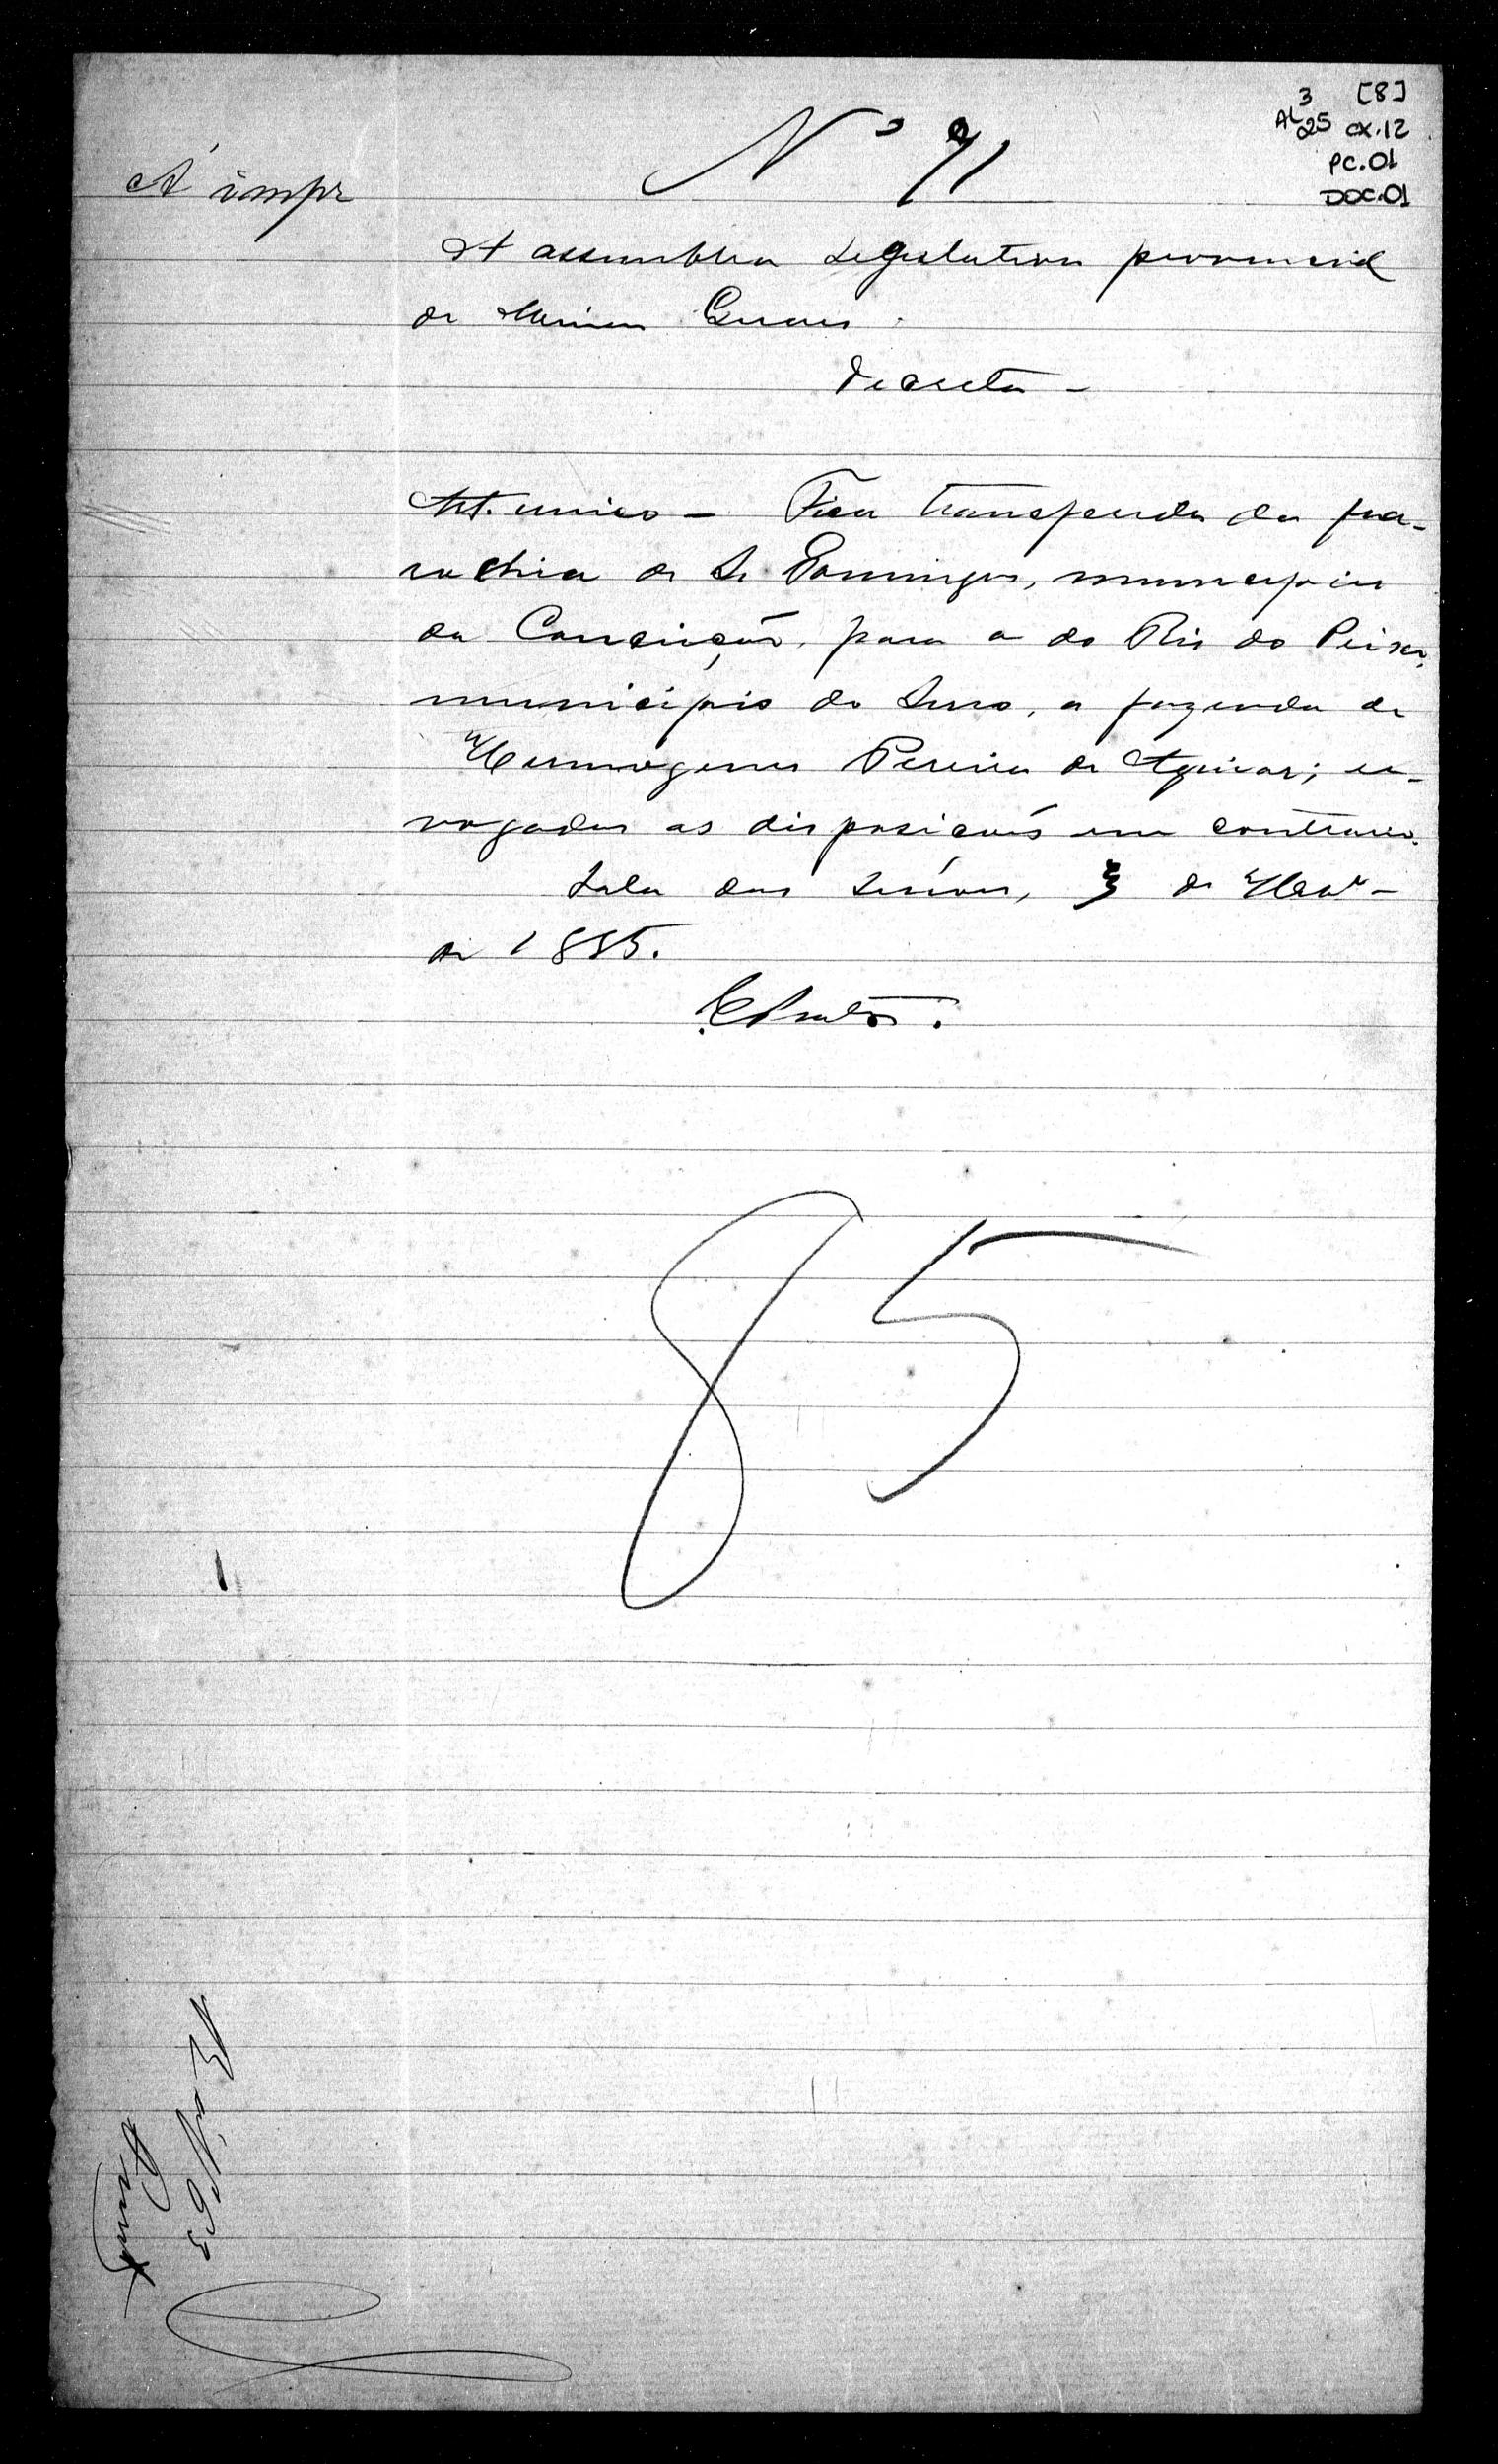 3 [8]
AL 25 CX.12
PC.01
DOC.01
Nº 91
A' impr
A assemblea Legislativa provincial
de Minas Geraes
decreta -
Art. unico - Fica transferida da pa-
rochia de S. Domingos, municipio
da Conceição, para a do Rio do Peixe,
municipio do Serro, a fazenda de
Hermogenes Pereira de Aguiar; re-
vogadas as disposições em contrario.
Sala das Sessões, 3 de
de 1885.
85